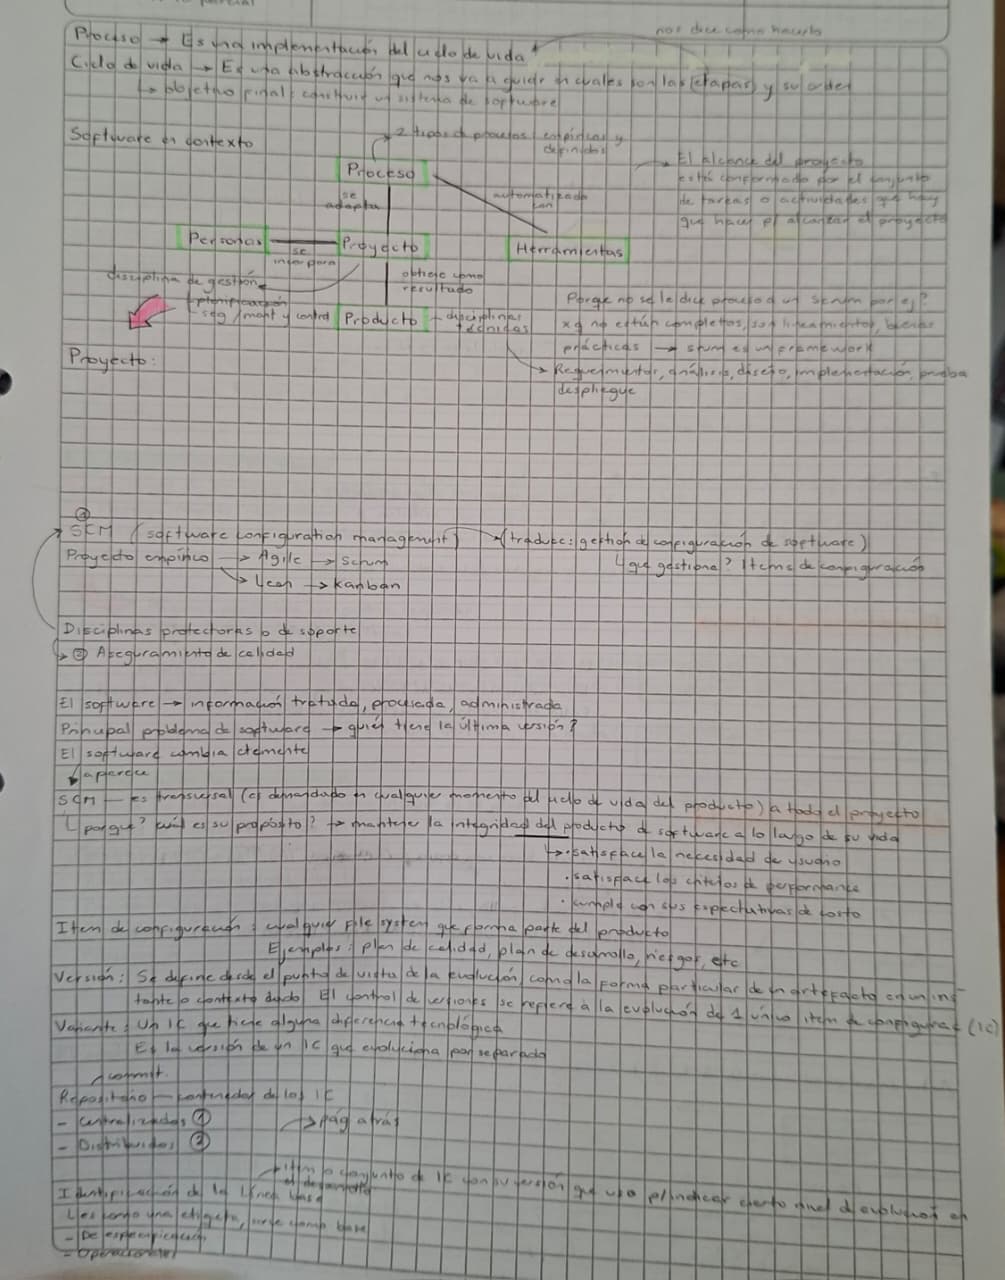 nos dice como hacerlo
Proceso → Es una implementación del ciclo de vida
Ciclo de vida → Es una abstracción que nos va a guiar en cuales son las etapas y su orden
↳ objetivo final: construir un sistema de software
Software en contexto
2 tipos de procesos: empíricos y
definidos
Proceso
→ El alcance del proyecto
está conformado por el conjunto
de tareas o actividades que hay
que hacer p/ alcanzar el proyecto
se
adapta
automatizado
con
Personas
Proyecto
Herramientas
se
incorpora
obtiene como
resultado
disciplina de gestión
planificación
seg/mont y control
Producto
- disciplinas
técnicas
Porque no se le dice proceso a un scrum por ej?
xq no están completos, son lineamientos, buenas
prácticas → scrum es un framework
→ Requerimientos, análisis, diseño, implementación, prueba
despliegue
Proyecto:
①
SCM (software configuration management) → (traduce: gestión de configuración de software)
Proyecto empírico → Agile → Scrum
↳ que gestiona? Items de configuración
↘ Lean → Kanban
Disciplinas protectoras o de soporte
↳ ② Aseguramiento de calidad
El software → información tratada, procesada, administrada
Principal problema de software → quién tiene la última versión?
El software cambia
aparece
SCM — es transversal (es demandado en cualquier momento del ciclo de vida del producto) a todo el proyecto
↳ porque? cuál es su propósito? → mantener la integridad del producto de software a lo largo de su vida
↳ · satisface la necesidad de usuario
· satisface los criterios de performance
· cumple con sus expectativas de costo
Item de configuración: cualquier file system que forma parte del producto
Ejemplos: plan de calidad, plan de desarrollo, riesgos, etc
Versión: Se define desde el punto de vista de la evolución, como la forma particular de un artefacto en un ins-
tante o contexto dado. El control de versiones se refiere a la evolución de 1 único item de configurac (IC)
Variante: Un IC que tiene alguna diferencia tecnológica
Es la versión de un IC que evoluciona por separado
commit
Repositorio — contenedor de los IC
- Centralizados ①
→ pág atrás
- Distribuidos ②
→ item o conjunto de IC con su versión que uso p/indicar cierto nivel d evolución en
el desarrollo
Identificación de la línea base
↳ es como una etiqueta, sirve como base
- De especificación
- Operacional